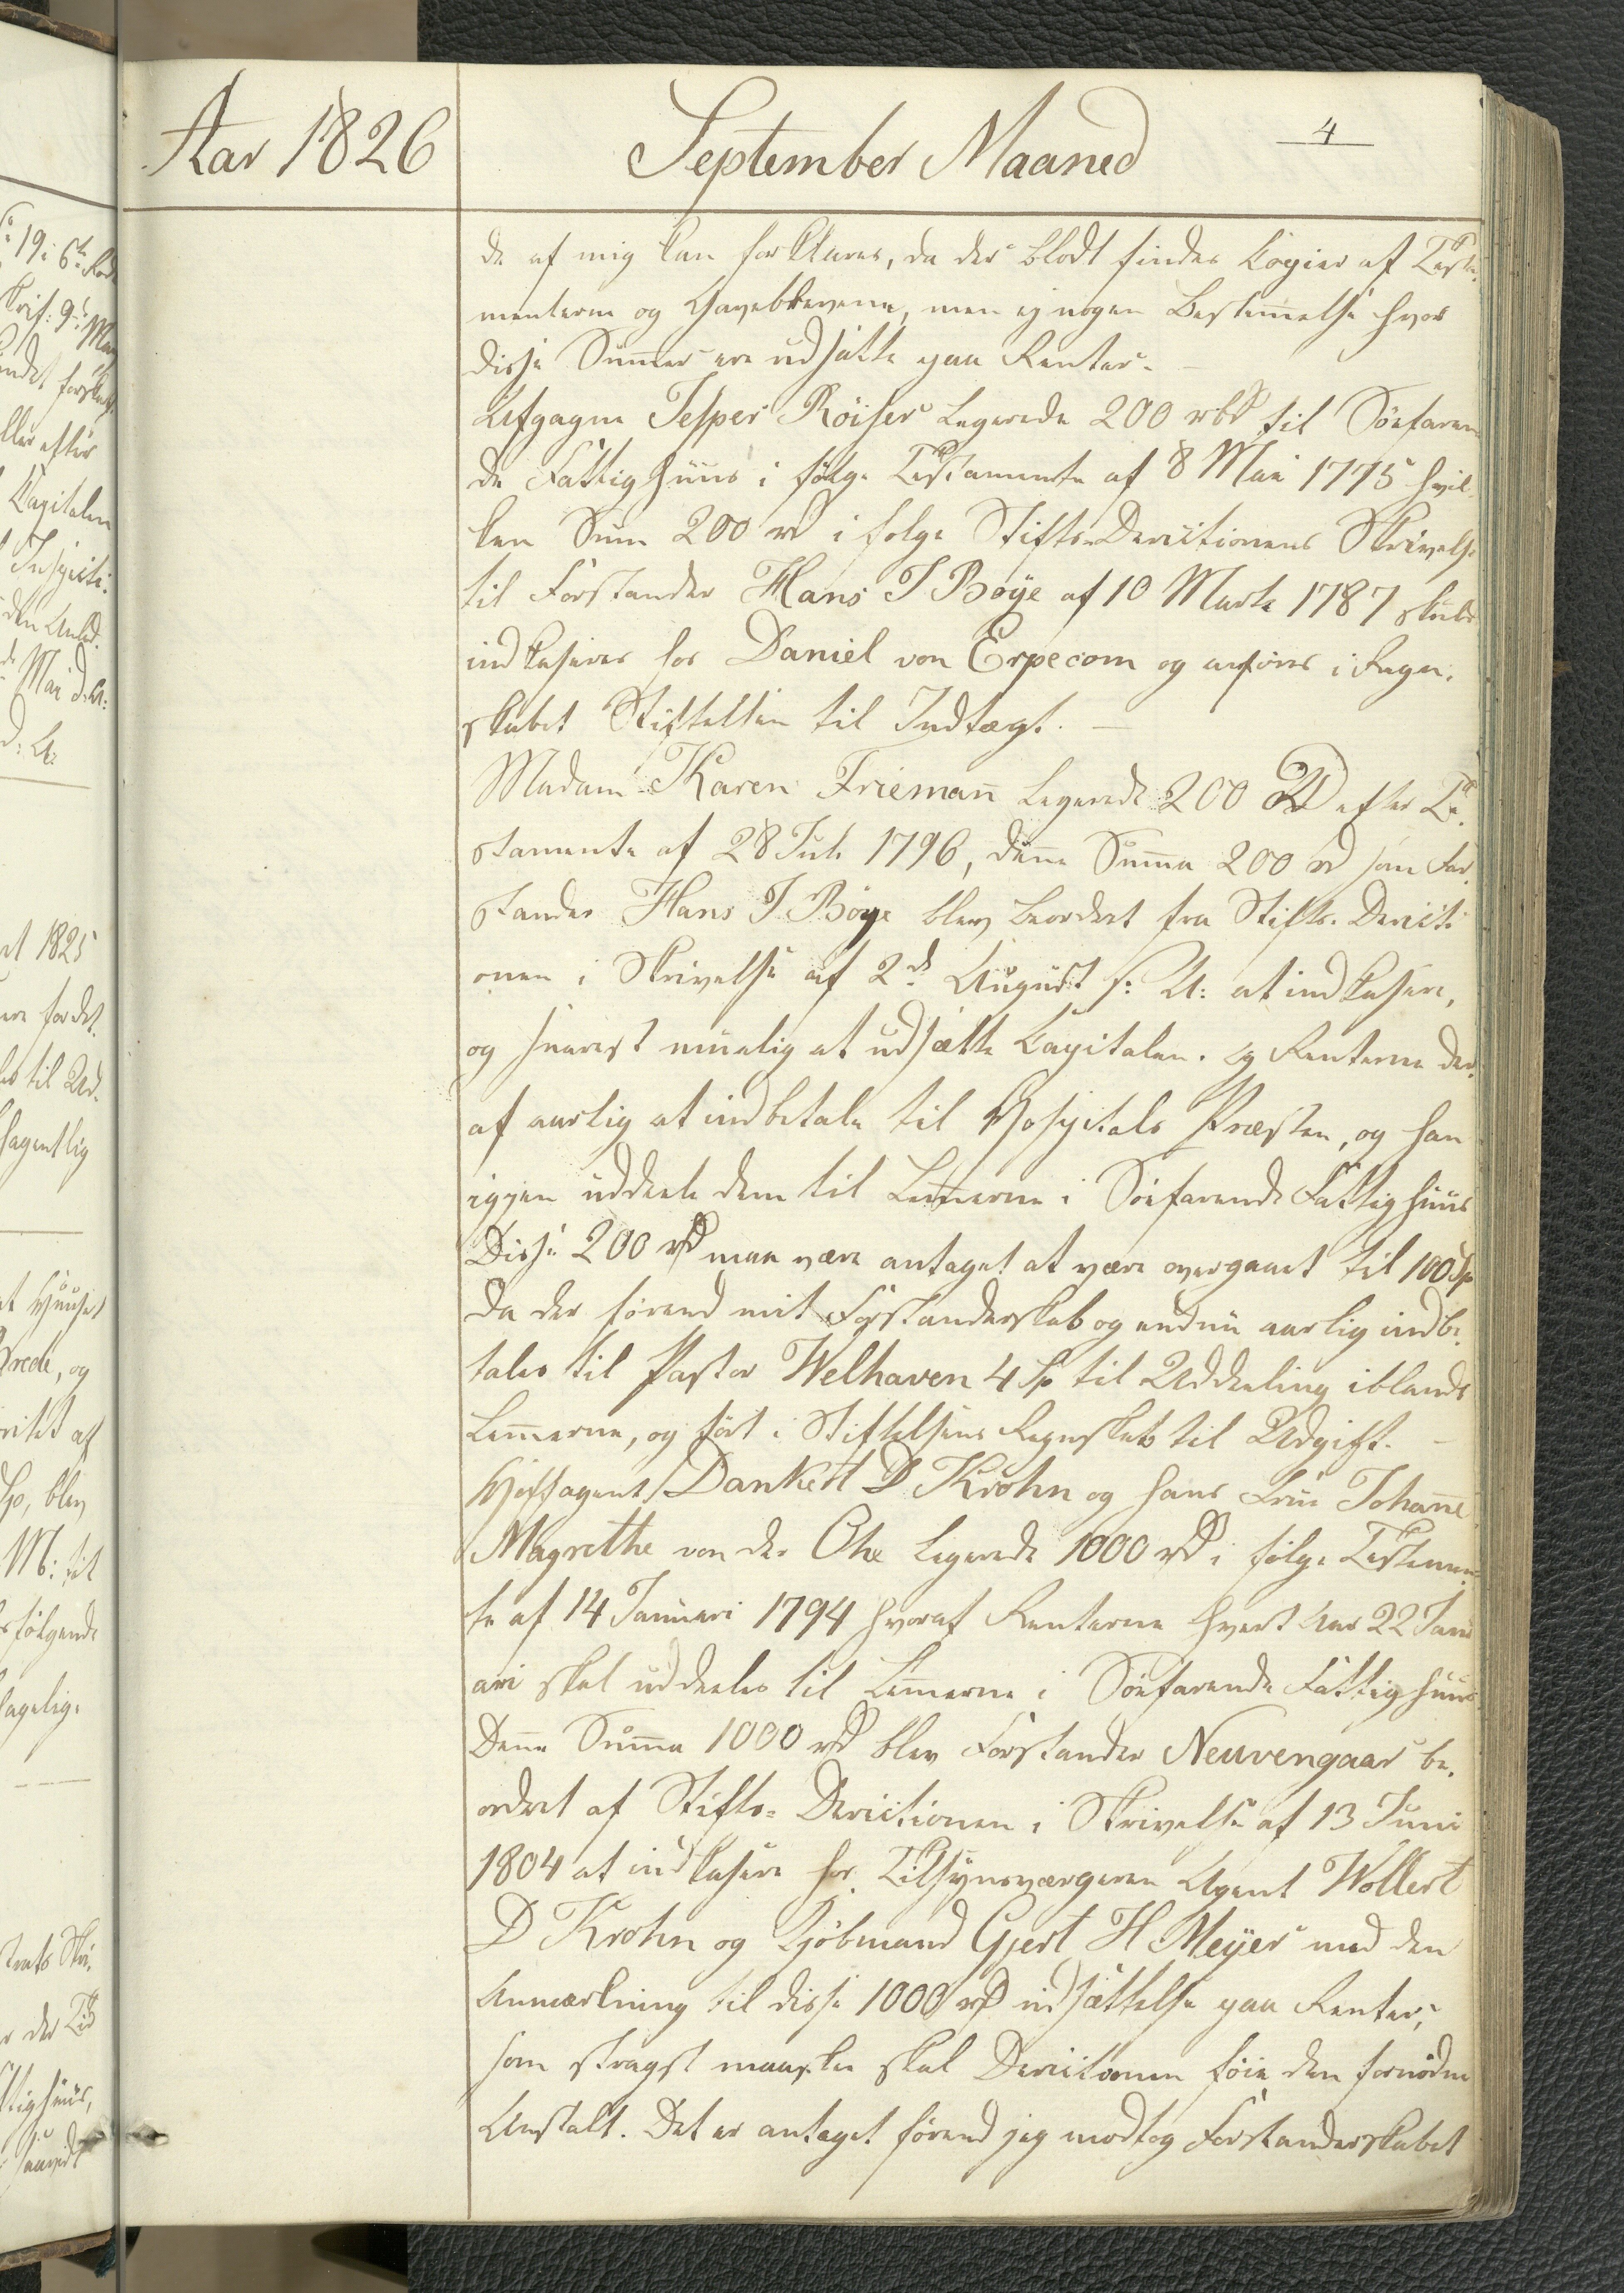 Aar 1826
September Maaned
4
de af mig kan forklares, da der blodt findes Copier af Testa-
menterne og Gavebrevene, men ej nogen Bestemelse hvor
disse Sumer ere udsatte paa Renter. –
Afgagne Jesper Röiser Legerede 200 rbd til Söefaren
de Fattighuus i fölge Testamente af 8 Mai 1775 hvil-
ken Sum 200 rd i folge Stifts-Derictionens Skrivelse
til Forstander Hans J Böÿe af 10 Marts 1787 skulde
indkaseres hos Daniel von Erpecom og anföres i Regn-
skabet Stiftelsen til Indtægt. –
Madam Karen Friemañ Legerede 200 Rd efter Te-
stamente af 28 Juli 1796, deñe Suma 200 rd som For-
stander Hans J Böye blev beordret fra Stifts-Dericti
onen i Skrivelse af 2d August s: A: at indkasere,
og snarest muelig at udsætte Capitalen. og Renterne der-
af aarlig at indbetale til Hospitals Præsten, og han
igjen uddeele dem til Lemerne i Söefarende Fattighuus
Disse 200 rd maa være antaget at være overgaaet til 100 Sp
da der förend mit Forstanderskab og endnu aarlig indbe-
tales til Pastor Welhaven 4 Sp til Uddeeling iblandt
Lemerne, og fört i Stiftelsens Regnskab til Udgift. –
Hofagent Dankert D Krohn og hans Frue Johañe
Magrethe von der Ohe Legerede 1000 rd i fölge Testamen-
te af 14 Januari 1794 hvoraf Renterne hvert Aar 22 Janu
ari skal uddeeles til Lemerne i Söefarende Fattighuus
Deñe Suma 1000 rd blev Forstander Neuvengaar be-
ordret af Stifts-Derictionen i Skrivelse af 13 Juni
1804 at indkasere hos Tilsynsværgeren Agent Wollert
D Krohn og Kjöbmand Gjert H Meÿer med den
Anmærkning til disse 1000 rd udsættelse paa Renter,
som stragst maaskee skal Derictionen föie den fornödne
Anstalt. Det er antaget förend jeg modtog Forstanderskabet